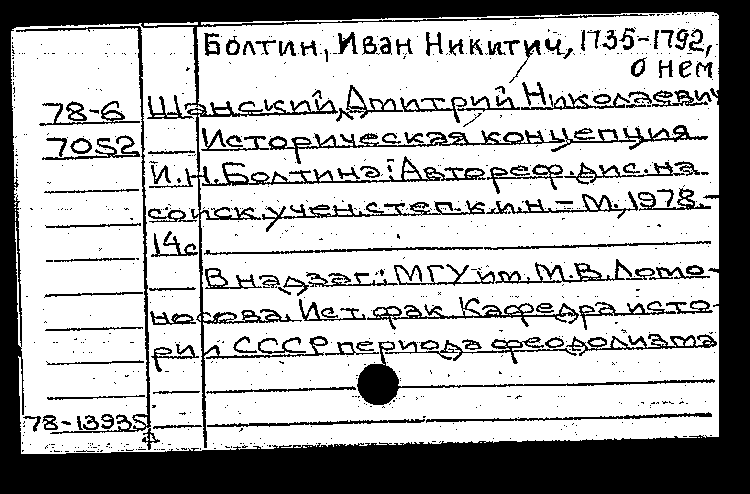 Болтин, Иван Никитич, 1735-1792,
о нем
78-6 Шанский, Дмитрий Николаевич
7052 Историческая концепция
И.Н.Болтина: Автореф.дис.на
соиск.учен.степ.к.и.н. - М., 1978. -
14с.
В надзаг.: МГУ им. М.В.Ломо-
носова. Ист. фак. Кафедра исто-
рии СССР периода феодализма
78-13935
а